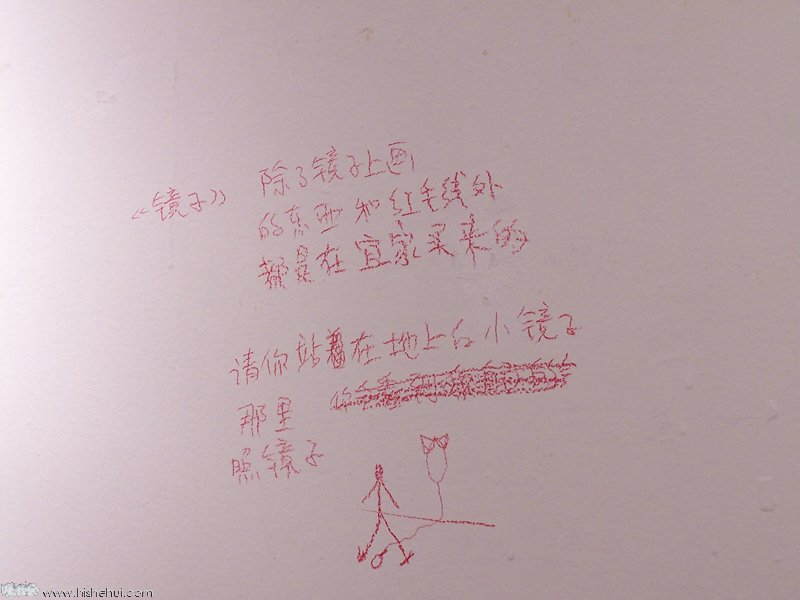 《镜子》
除了镜子上画
的东西和红毛线外
都是在宜家买来的
请你站在地上的小镜子
那里
照镜子
www.hishehui.com